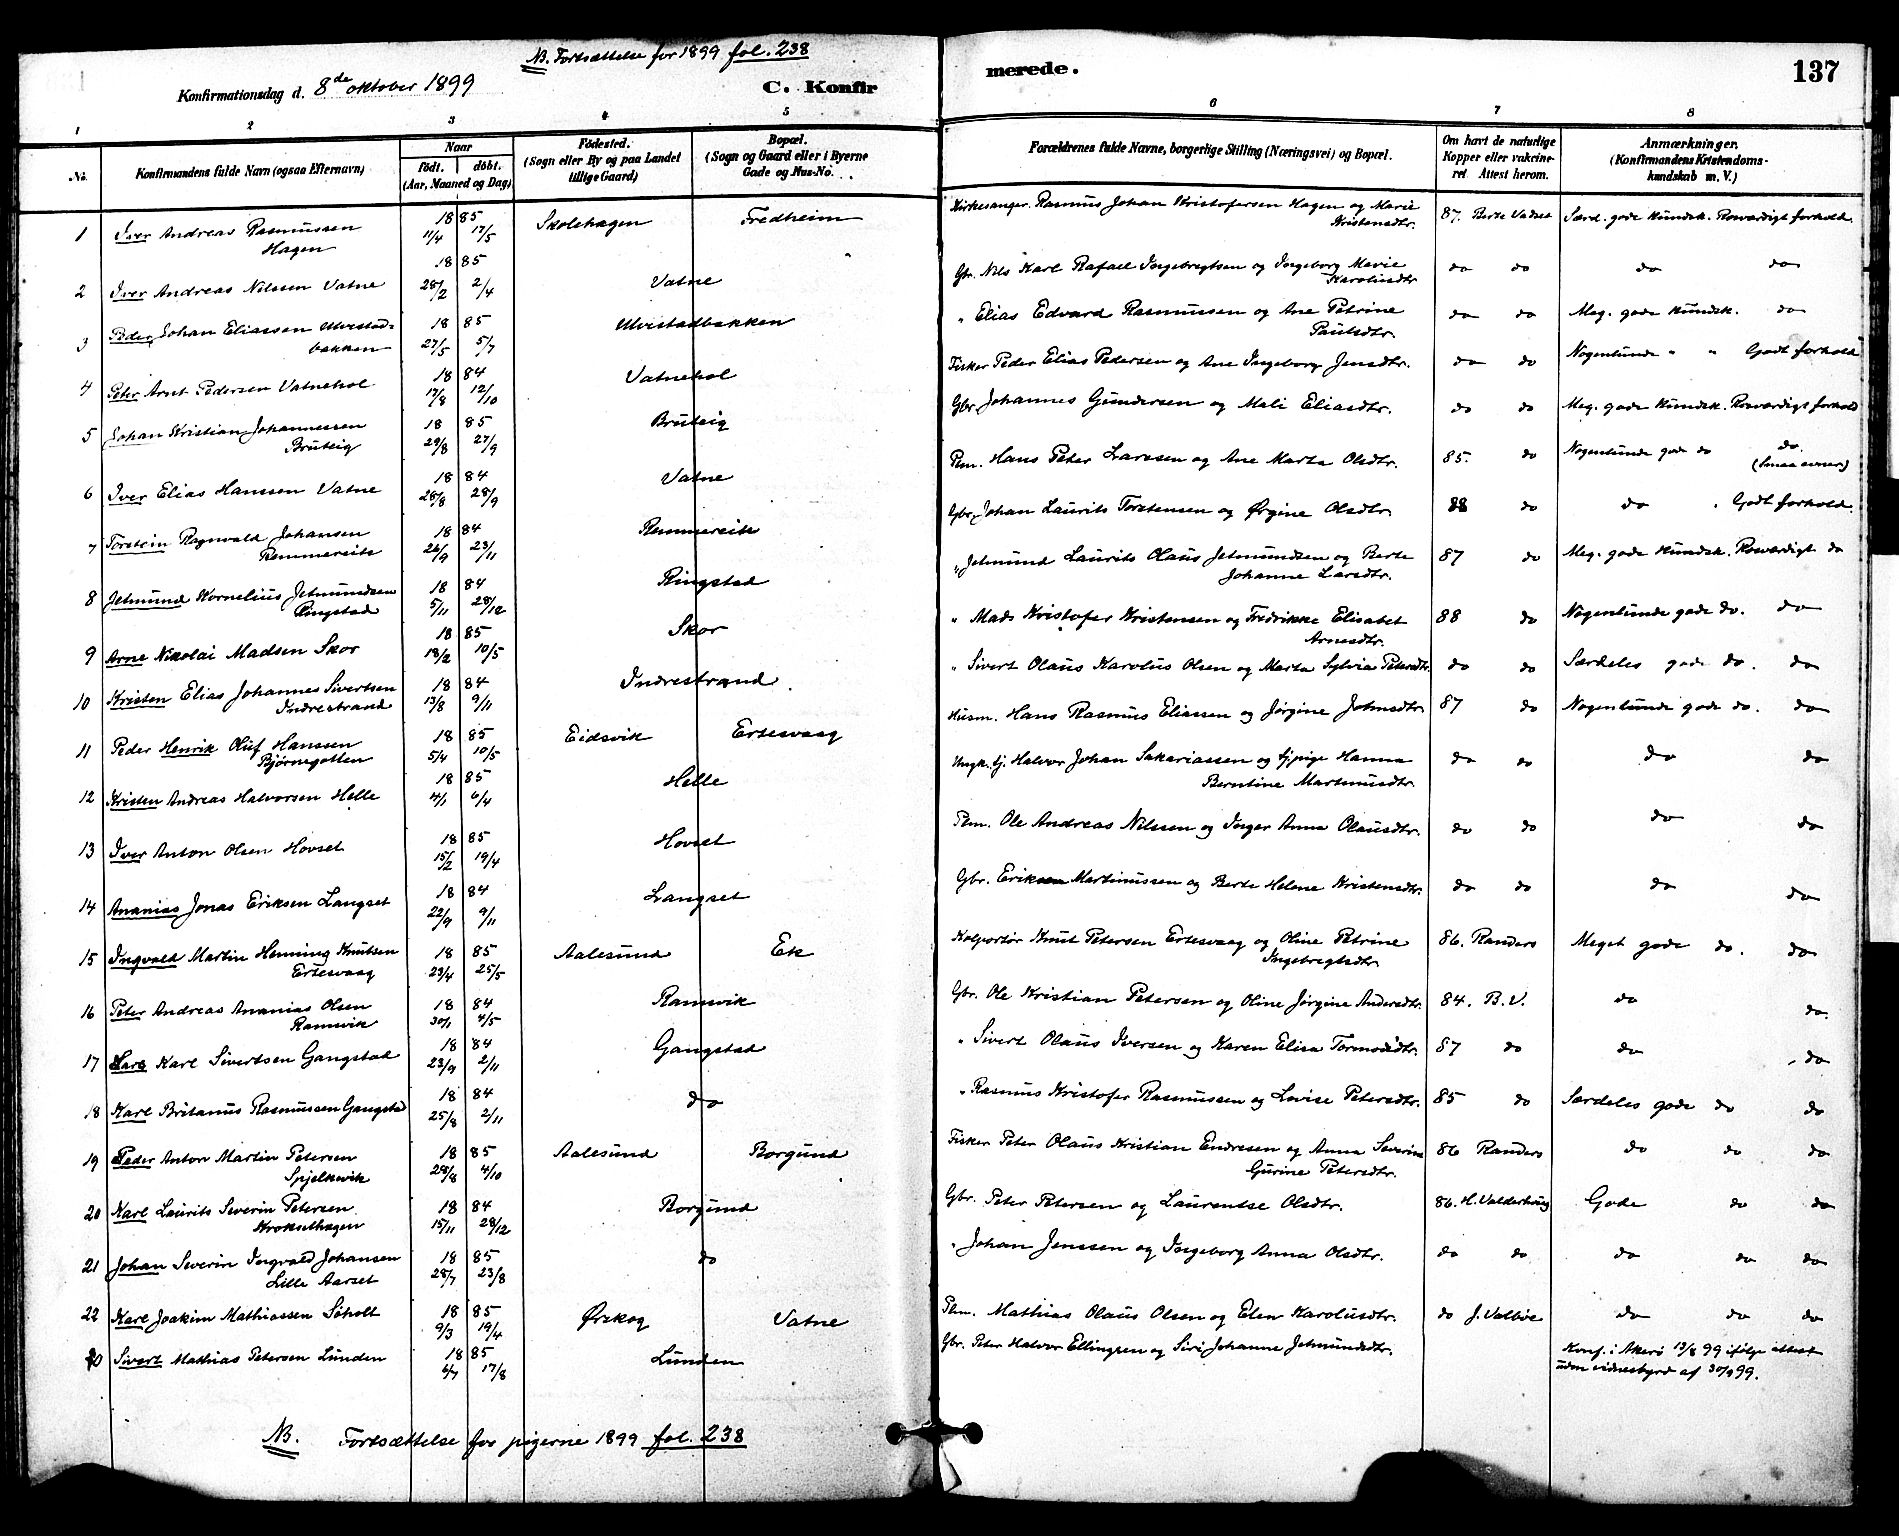 NB. Fortsættelse for 1899 fol. 238
Konfirmationsdag d. 8de oktober 1899 C. Konfir merede. 137
1 2 3 4 5 6 7 8
No. Konfirmandens fulde Navn (ogsaa Efternavn) Naar født. døbt. (Aar, Maaned og Dag) Fødested. (Sogn eller By og paa Landet tillige Gaard) Bopæl. (Sogn og Gaard eller i Byerne Gade og Hus-No. Forældrenes fulde Navne, borgerlige Stilling (Næringsvei) og Bopæl. Om havt de naturlige Kopper eller vaccineret Attest herom. Anmærkninger. (Konfirmandens Kristendomskundskab m. V.)
1 Iver Andreas Rasmussen Hagen 1885 11/4 17/5 Skolehagen Fredheim Kirkesanger. Rasmus Johan Kristofersen Hagen og Marie Kristensdtr. 87. Berte Vatne Særd. gode kundsk. Rosværdigt forhold.
2 Iver Andreas Nilssen Vatne 1885 28/2 2/4 Vatne Gbr. Nils Karl Rafael Ingebregtsen og Ingeborg Marie Karolusdtr do do do do
3 Peder Johan Eliassen Ulvestadbakken 1885 27/5 5/7 Ulvestadbakken " Elias Edvard Rasmussen og Ane Petrine Paulsdtr. do do Meg. gode kundsk. do
4 Peter Arnt Pedersen Vatnehol 1884 17/8 12/10 Vatnehol Fisker Peder Elias Pedersen og Ane Ingeborg Jensdtr. do do Nogenlunde " " Godt forhold
5 Johan Kristian Johannessen Bruteig 1885 29/8 27/9 Bruteig Gbr. Johannes Gundersen og Mali Eliasdtr. do do Meg. gode kundsk. Rosværdigt forhold
6 Iver Elias Hanssen Vatne 1884 28/8 28/9 Vatne Plm. Hans Peter Larssen og Ane Marta Olsdtr. 85. do Nogenlunde gode do do. (Smaa evner)
7 Torstein Ragnvald Johansen Remmereite 1884 26/9 23/11 Remmereite Gbr. Johan Laurits Torstensen og Ørgine Olsdtr 88 do do . Godt forhold.
8 Jetmund Kornelius Jetmundsen Ringstad 1884 5/11 28/12 Ringstad " Jetmund Laurits Olaus Jetmundsen og Berte Johanne Larsdtr. 87 do Meg. gode kundsk. Rosværdigt do
9 Arne Nikolai Madsen Skor 1885 18/2 10/5 Skor " Mads Kristofer Kristensen og Fredrikke Elisabet Arnesdtr. 88 do Nogenlunde gode do. do
10 Kristen Elias Johannes Sivertsen Indrestrand 1884 13/8 9/11 Indrestrand " Sivert Olaus Karolus Olsen og Marta Sylvia Petersdtr. do do Særdeles gode do. do
11 Peder Henrik Oluf Hanssen Bjørnegotten 1885 5/4 10/5 Eidsvik Ertesvaag Husm. Hans Rasmus Eliassen og Jørgine Johnsdtr. 87 do Nogenlunde gode do. do
12 Kristen Andreas Halvorsen Helle 1885 4/1 6/4 Helle Ungk. tj. Halvor Johan Sakariassen og tj. pige Hanna Berntine Martinusdtr. do do do do
13 Iver Anton Olsen Hovset 1885 15/2 19/4 Hovset Plm. Ole Andreas Nilssen og Inger Anna Olausdtr. do do do do
14 Ananias Jonas Eriksen Langset 1884 22/9 9/11 Langset Gbr. Erik Martinussen og Berte Helene Kristensdtr. do do do do
15 Ingvald Martin Henning Knutsen Ertesvaag 1885 23/4 25/5 Aalesund Ek Kolportør Knut Petersen Ertesvaag og Oline Petrine Ingebregtsdtr 86. Randers Meget gode do. do
16 Peter Andreas Ananias Olsen Ramsvik 1884 30/1 4/5 Ramsvik Gbr. Ole Kristian Petersen og Oline Jørgine Andersdtr. 84. B. V. do do.
17 Lars Karl Sivertsen Gangstad 1884 23/9 2/11 Gangstad " Sivert Olaus Iversen og Karen Elisa Tormodsdtr. 87 do do do
18 Karl Britanus Rasmussen Gangstad 1884 25/8 2/11 do " Rasmus Kristofer Rasmussen og Lovise Petersdtr. 85 do Særdeles gode do do
19 Peder Anton Martin Petersen Spjelkevik 1885 28/8 4/10 Aalesund Borgund Fisker Peter Olaus Kristian Endresen og Anna Severine Gurine Petersdtr. 86 Randers do do do
20 Karl Laurits Severin Petersen Krokselhagen 1884 15/11 28/12 Borgund Gbr. Peter Petersen og Laurentse Olsdtr. 86. H. Valderhaug Gode do do
21 Johan Severin Ingvald Johansen Lille Aarset 1885 28/7 23/8 do " Johan Jenssen og Ingeborg Anna Olsdtr. do do do do do
22 Karl Joakim Mathiassen Søholt 1885 9/3 19/4 Ørskog Vatne Plm. Mathias Olaus Olsen og Elen Karolusdtr. do J. Valbøe do do do
Sivert Mathias Petersen Lunden 1885 4/7 17/8 Lunden Gbr. Peter Halvor Ellingsen og Siri Johanne Jetmundsdtr. Konf. i Akerø 13/8 99 ifølge attest uden vidnesbyrd af 30/9 99.
NB. Fortsættelse for pigerne 1899 fol. 238